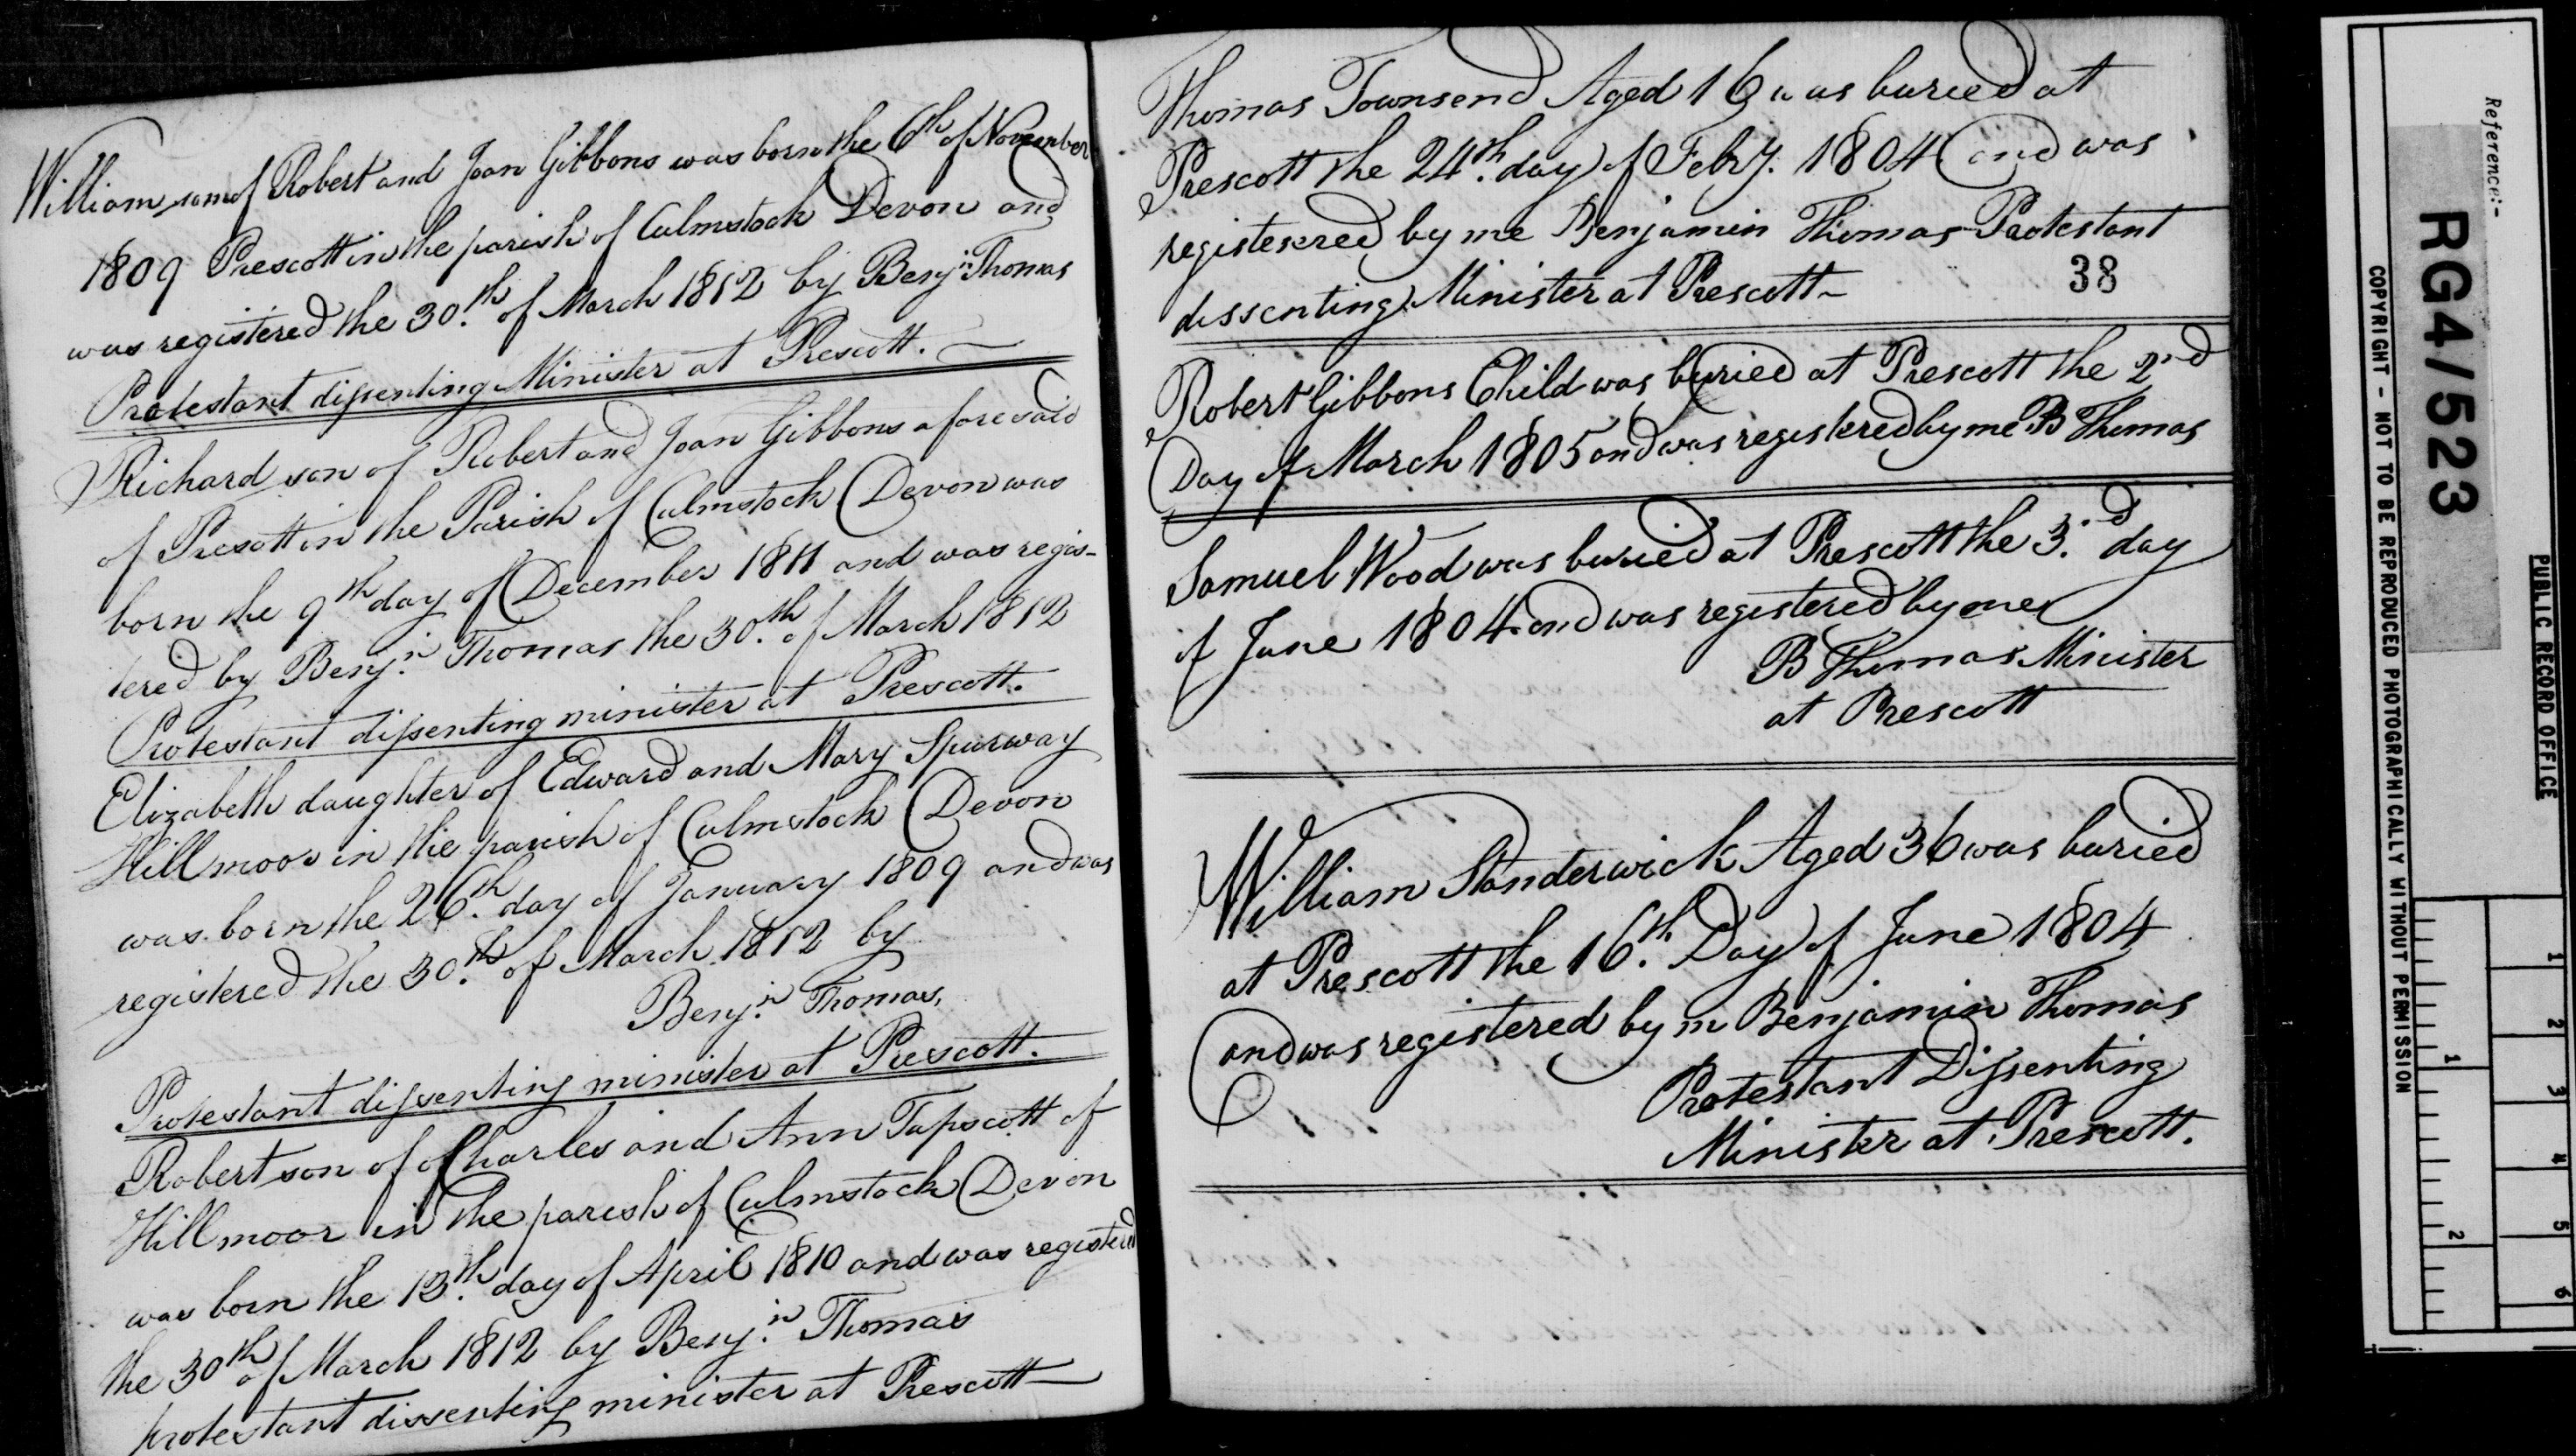 William son of Robert and Joan Gibbons was born the 6th of November
1809 Prescott in the parish of Culmstock Devon and
was registered the 30.th of March 1812 by Benj.n Thomas
Protestant dissenting Minister at Prescott.
Richard son of Robert and Joan Gibbons aforesaid
of Prescott in the Parish of Culmstock Devon was
born the 9th day of December 1811 and was regis-
tered by Benj.n Thomas the 30.th of March 1812
Protestant dissenting minister at Prescott.
Elizabeth daughter of Edward and Mary Spurway
Hillmoor in the parish of Culmstock Devon
was born the 26.th day of January 1809 and was
registered the 30.th of March 1812 by
Benj.n Thomas,
Protestant dissenting minister at Prescott.
Robert son of Charles and Ann Tapscott of
Hillmoor in the parish of Culmstock Devon
was born the 13.th day of April 1810 and was registered
the 30th of March 1812 by Benj.n Thomas
protestant dissenting minister at Prescott
Thomas Townsend Aged 16 was buried at
Prescott the 24.th day of Febry. 1804 and was
registesered by me Benjamin Thomas Protestant
dissenting Minister at Prescott
38
Robert Gibbons Child was buried at Prescott the 2nd
Day of March 1805 and was registered by me B Thomas
Samuel Wood was buried at Prescott the 3.d day
of June 1804 and was registered by me
B Thomas Minister
at Prescott
William Standerwick Aged 36 was buried
at Prescott the 16.th Day of June 1804
and was registered by m Benjamin Thomas
Protestant Dissenting
Minister at Prescott.
Reference:-
RG4/523
PUBLIC RECORD OFFICE
COPYRIGHT - NOT TO BE REPRODUCED PHOTOGRAPHICALLY WITHOUT PERMISSION
1
2
3
4
5
6
1
2